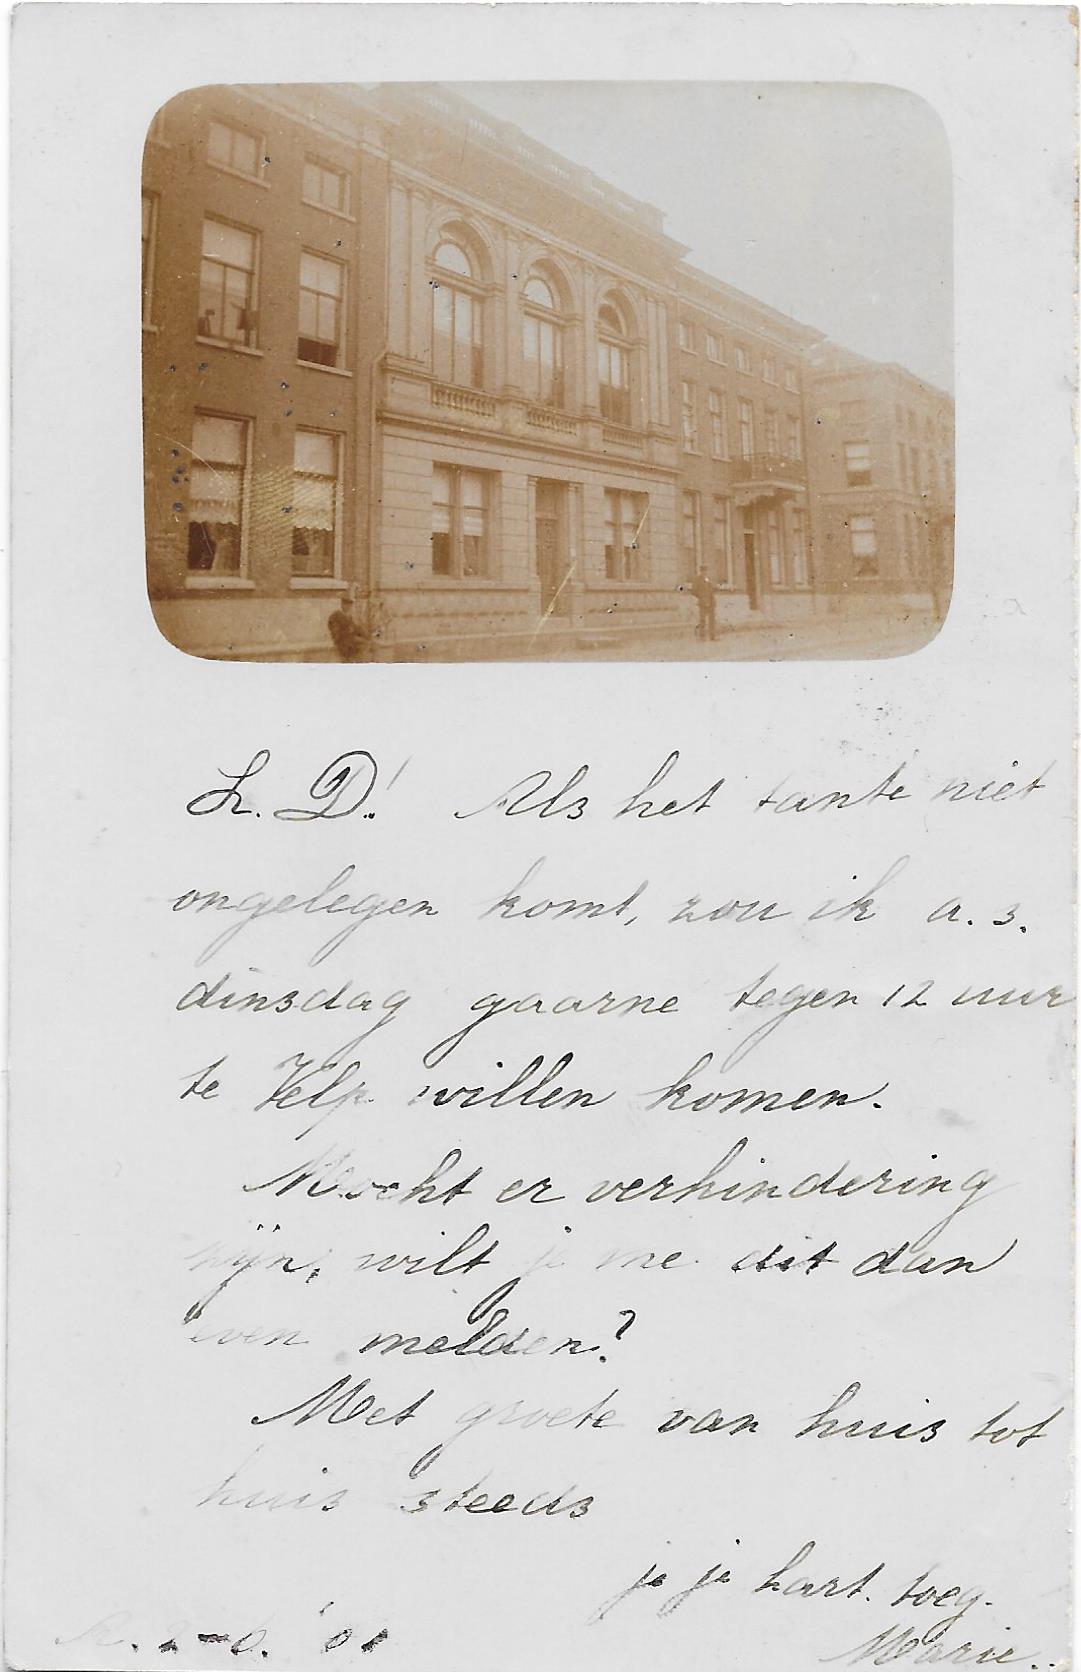 L. D.! Als het tante niet
ongelegen komt, zou ik a. s.
dinsdag gaarne tegen 12 uur
te Velp willen komen.
Mocht er verhindering
zijn, wilt je me dit dan
even melden?
Met groete van huis tot
huis steeds
je je hart. toeg.
Marie.